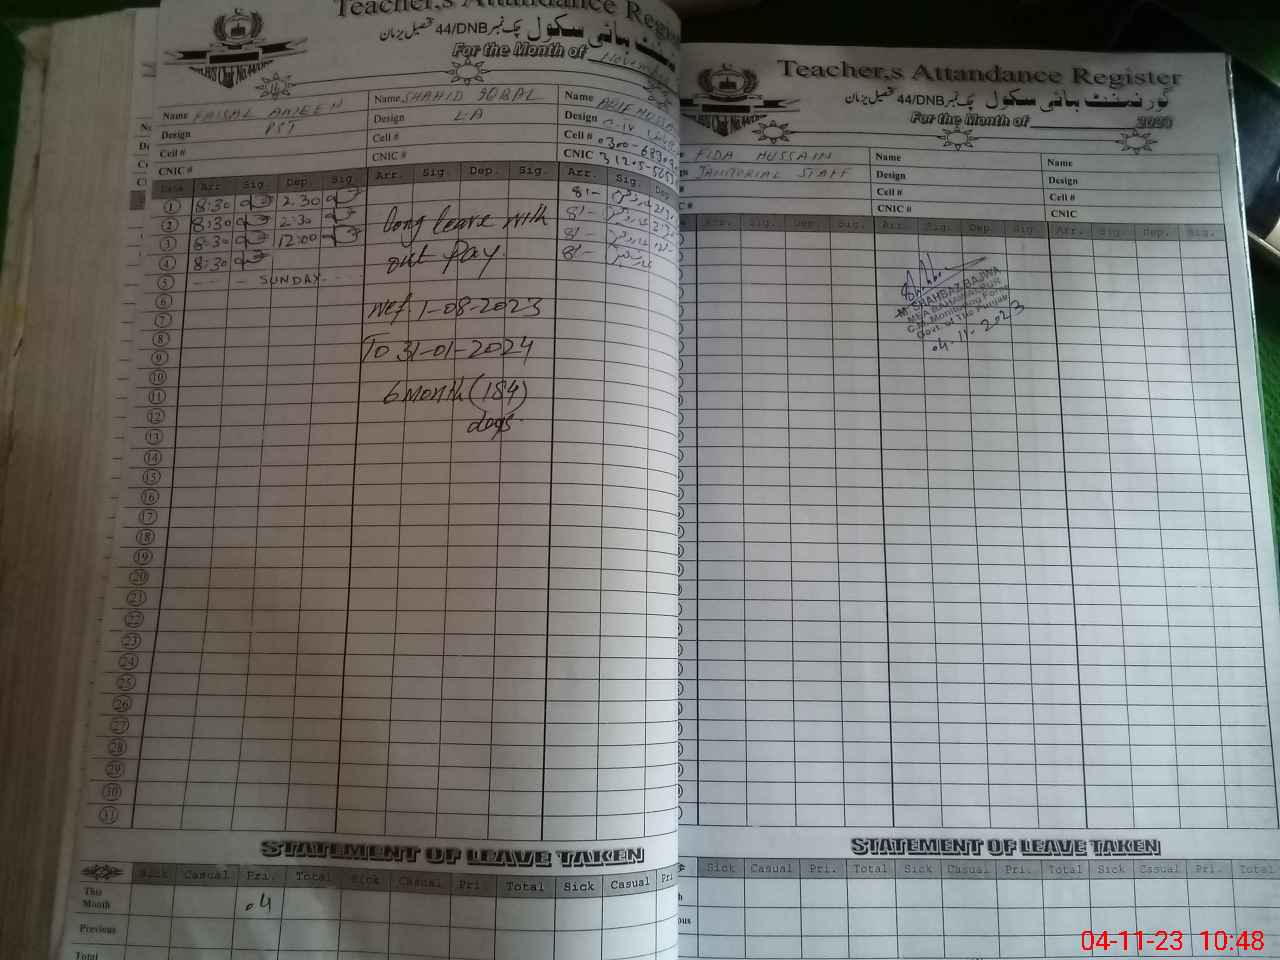 Teacher,s Attandance Register
گورنمنٹ ہائی سکول چک نمبر 44/DNB تحصیل یزمان
For the Month of November
Name FAISAL
Design PST
Cell #
CNIC #
Name SHAHID IQBAL
Design L-A
Cell #
CNIC #
Name
Design
Cell #
CNIC
Date Arr. Sig. Dep. Sig. Arr. Sig. Dep. Sig. Arr. Sig. Dep
1 8:30 2.30 8:-
2 8:30 2:30 8:-
3 8:30 12:00 8:-
4 8:30 8:-
5 SUNDAY
6
7
8
9
10
11
12
13
14
15
16
17
18
19
20
21
22
23
24
25
26
27
28
29
30
31
long leave with
out Pay.
wef. 1-08-2023
To 31-01-2024
6 month (184)
days
STATEMENT OF LEAVE TAKEN
Sick Casual Pri. Total Sick Casual Pri. Total Sick Casual Pri
This Month .4
Previous
Total
Teacher,s Attandance Register
گورنمنٹ ہائی سکول چک نمبر 44/DNB تحصیل یزمان
For the Month of 2023
FIDA HUSSAIN
JANITORIAL STAFF
Name
Design
Cell #
CNIC #
Name
Design
Cell #
CNIC
Arr. Sig. Dep. Sig. Arr. Sig. Dep. Sig. Arr. Sig. Dep. Sig.
M. SHAHBAZ BAJWA
MEA BAHAWALPUR
C.M. Monitoring Force
Govt. of The Punjab
04-11-2023
STATEMENT OF LEAVE TAKEN
Sick Casual Pri. Total Sick Casual Pri. Total Sick Casual Pri. Total
04-11-23 10:48